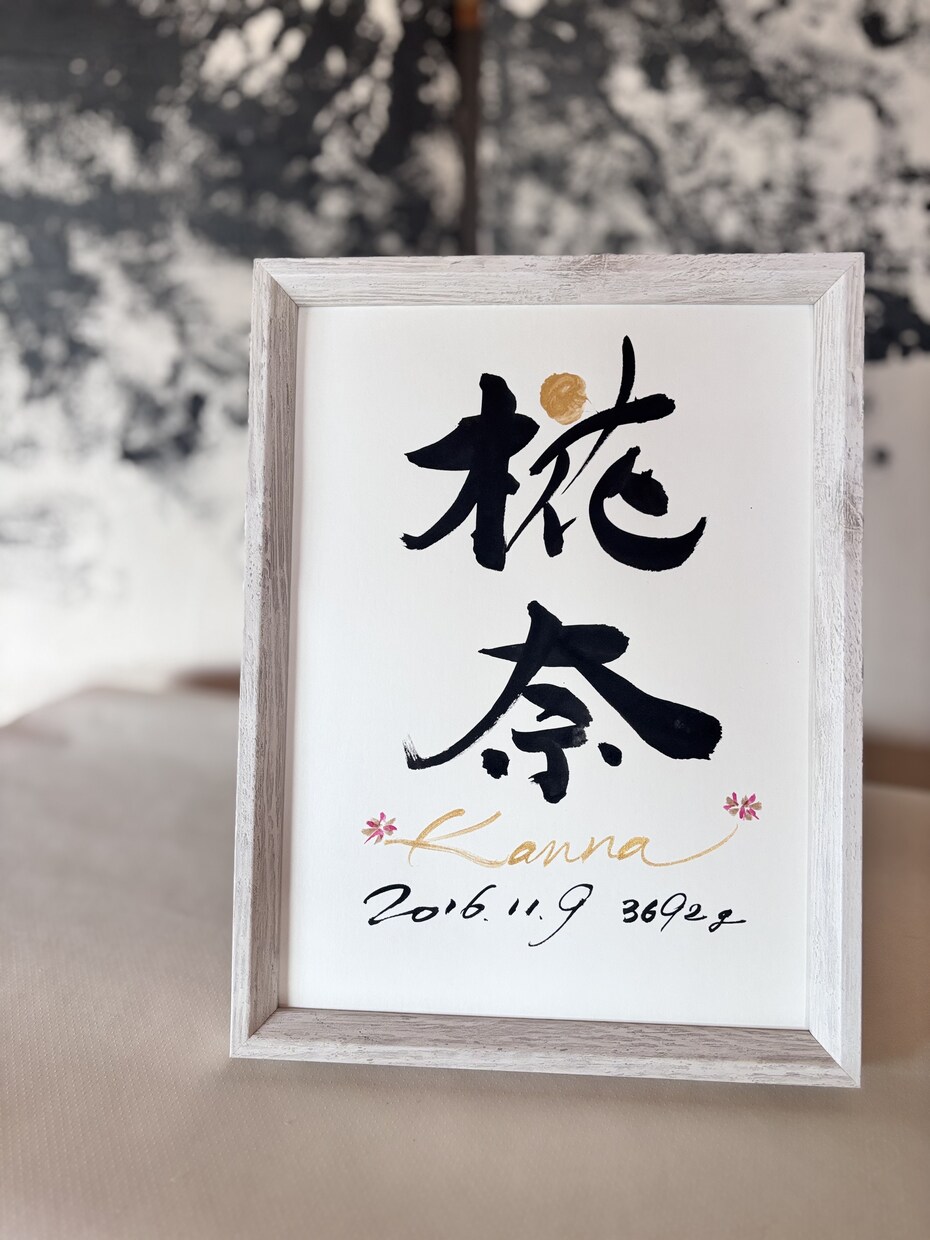 椛奈
Kanna
2016.11.9 3692g